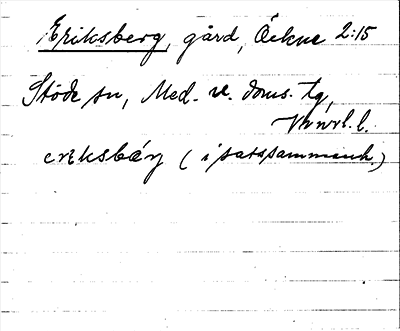 Eriksberg, gård, Öckne 2:15
Stöde sn, Med. v. doms. tg,
Vnrl. l.
eriksbærj (i satssammanh.)